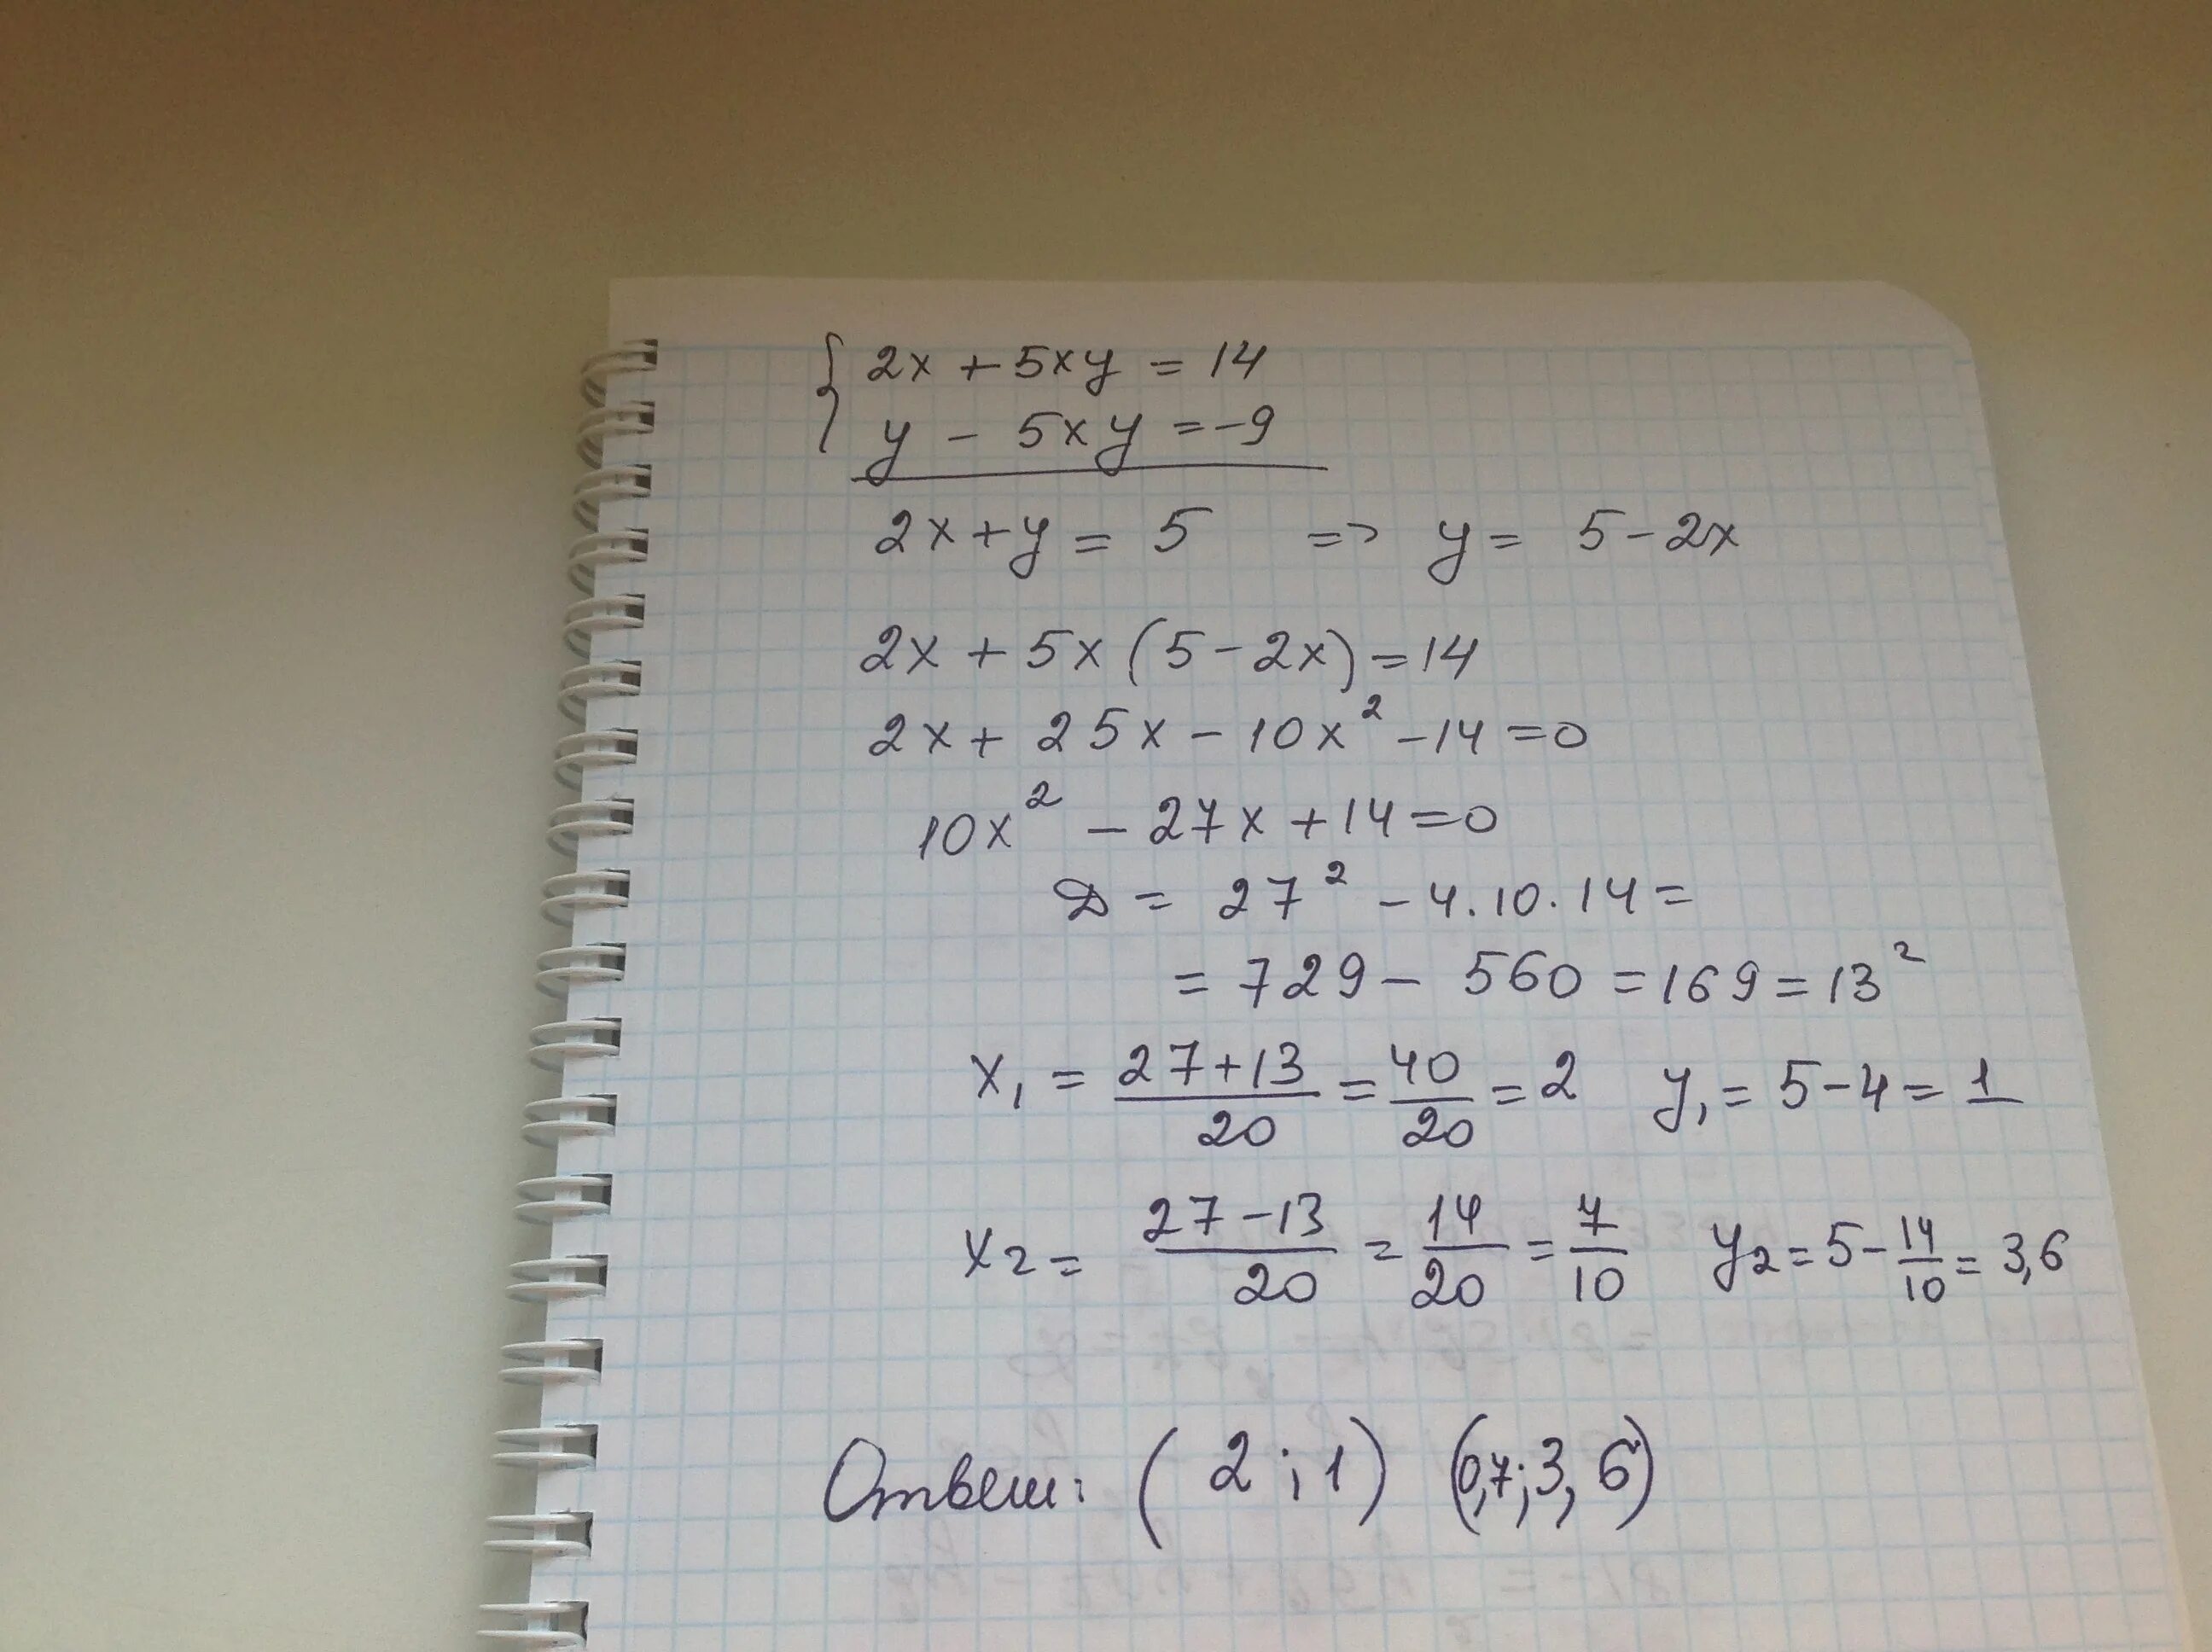 { 2x + 5xy = 14
y - 5xy = -9
2x + y = 5 => y = 5 - 2x
2x + 5x (5 - 2x) = 14
2x + 25x - 10x² - 14 = 0
10x² - 27x + 14 = 0
D = 27² - 4 · 10 · 14 =
= 729 - 560 = 169 = 13²
x₁ = (27 + 13)/20 = 40/20 = 2 y₁ = 5 - 4 = 1
x₂ = (27 - 13)/20 = 14/20 = 7/10 y₂ = 5 - 14/10 = 3,6
Ответ: (2 ; 1) (0,7 ; 3,6)